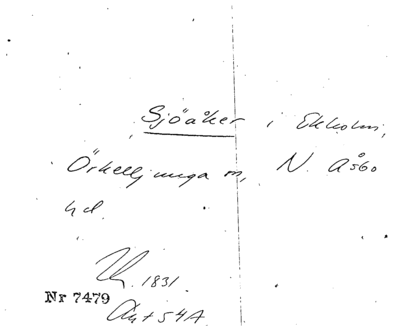 Sjöåker i Ekholm,
Örkelljunga m, N. Åsbo
hd.
1831.
Nr 7479
Akt 54A